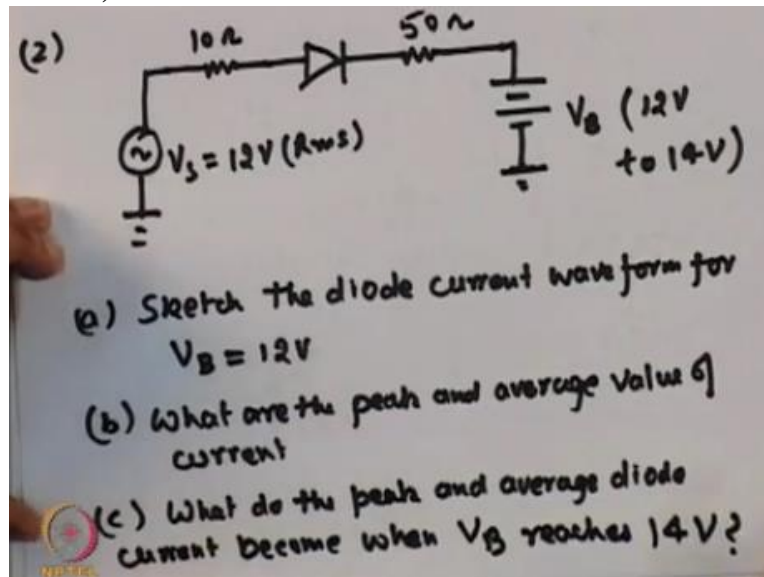 (2) 10Ω 50Ω
V_S = 12V (Rms) V_B (12V
to 14V)
(a) Sketch the diode current wave form for
V_B = 12V
(b) What are the peak and average value of
current
(c) What do the peak and average diode
current become when V_B reaches 14V?
NPTEL